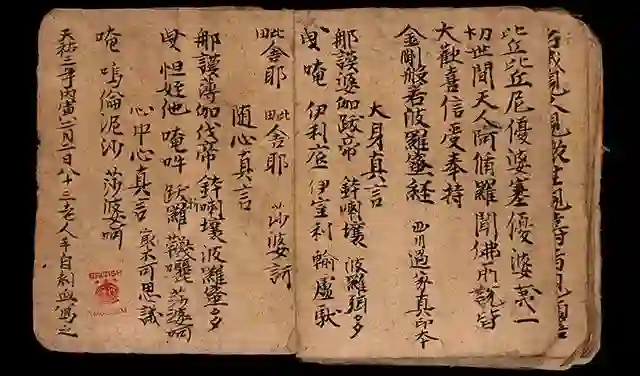 比丘比丘尼優婆塞優婆夷一
切世間天人阿脩羅聞佛所說皆
大歡喜信受奉持
金剛般若波羅蜜經 西川過家真印本
大身真言
那謨婆伽跋帝 鉢喇壤 波羅弭多
曳唵 伊利底 伊室利 輸盧馱
毗舍耶 毗舍耶 莎婆訶
随心真言
那謨薄伽伐帝 鉢喇壤波羅蜜多
曳怛姪他 唵吽 莎婆訶
心中心真言 最不可思議
唵 嗚倫泥沙 莎婆訶
天祐三年丙寅二月二日八十三老人手自刺血寫之
BRITISH MUSEUM